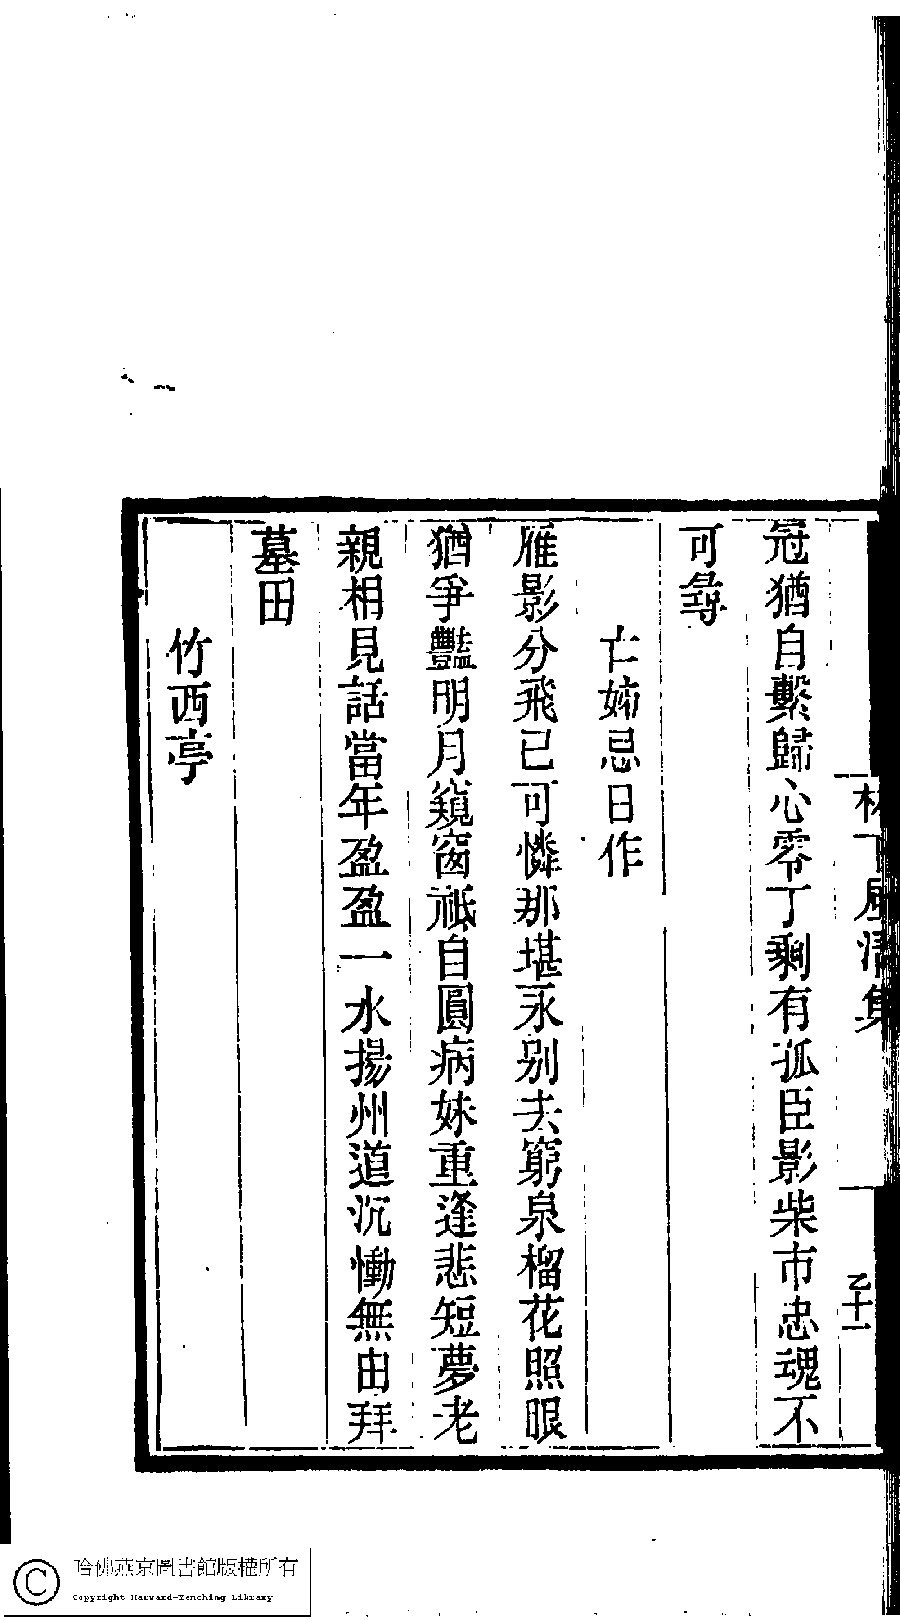 林下風清集
乙十一
冠猶自繫歸心零丁剩有孤臣影柴市忠魂不
可尋
亡姊忌日作
雁影分飛已可憐那堪永别去窮泉榴花照眼
猶爭豔明月窺窗祗自圓病妹重逢悲短夢老
親相見話當年盈盈一水揚州道沉慟無由拜
墓田
竹西亭
哈佛燕京圖書館版權所有
Copyright Harvard-Yenching Library